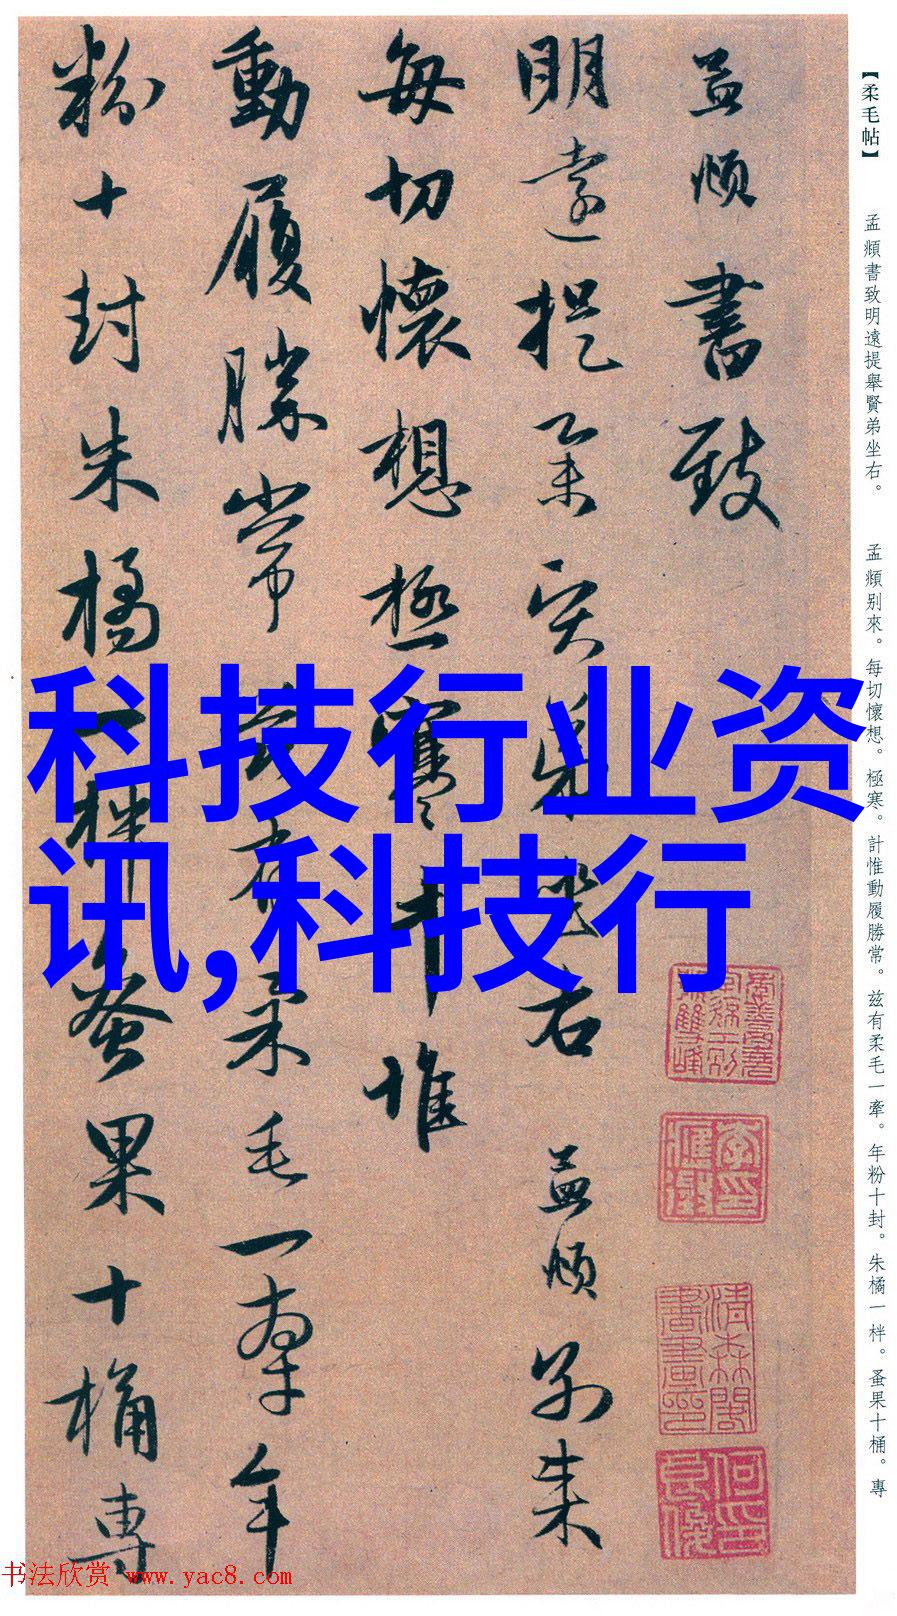 【柔毛帖】
孟頫書致明遠提舉賢弟坐右。
孟頫别來。每切懷想。極寒。計惟動履勝常。兹有柔毛一牽。年粉十封。朱橘一柈。蚤果十桶。專
孟頫書致
明遠提舉賢弟坐右 孟頫别來
每切懷想極寒計惟
動履勝常茲有柔毛一牽年
粉十封朱橘一柈蚤果十桶專
科技行业资
讯,科技行
书法欣赏 www.yac8.com